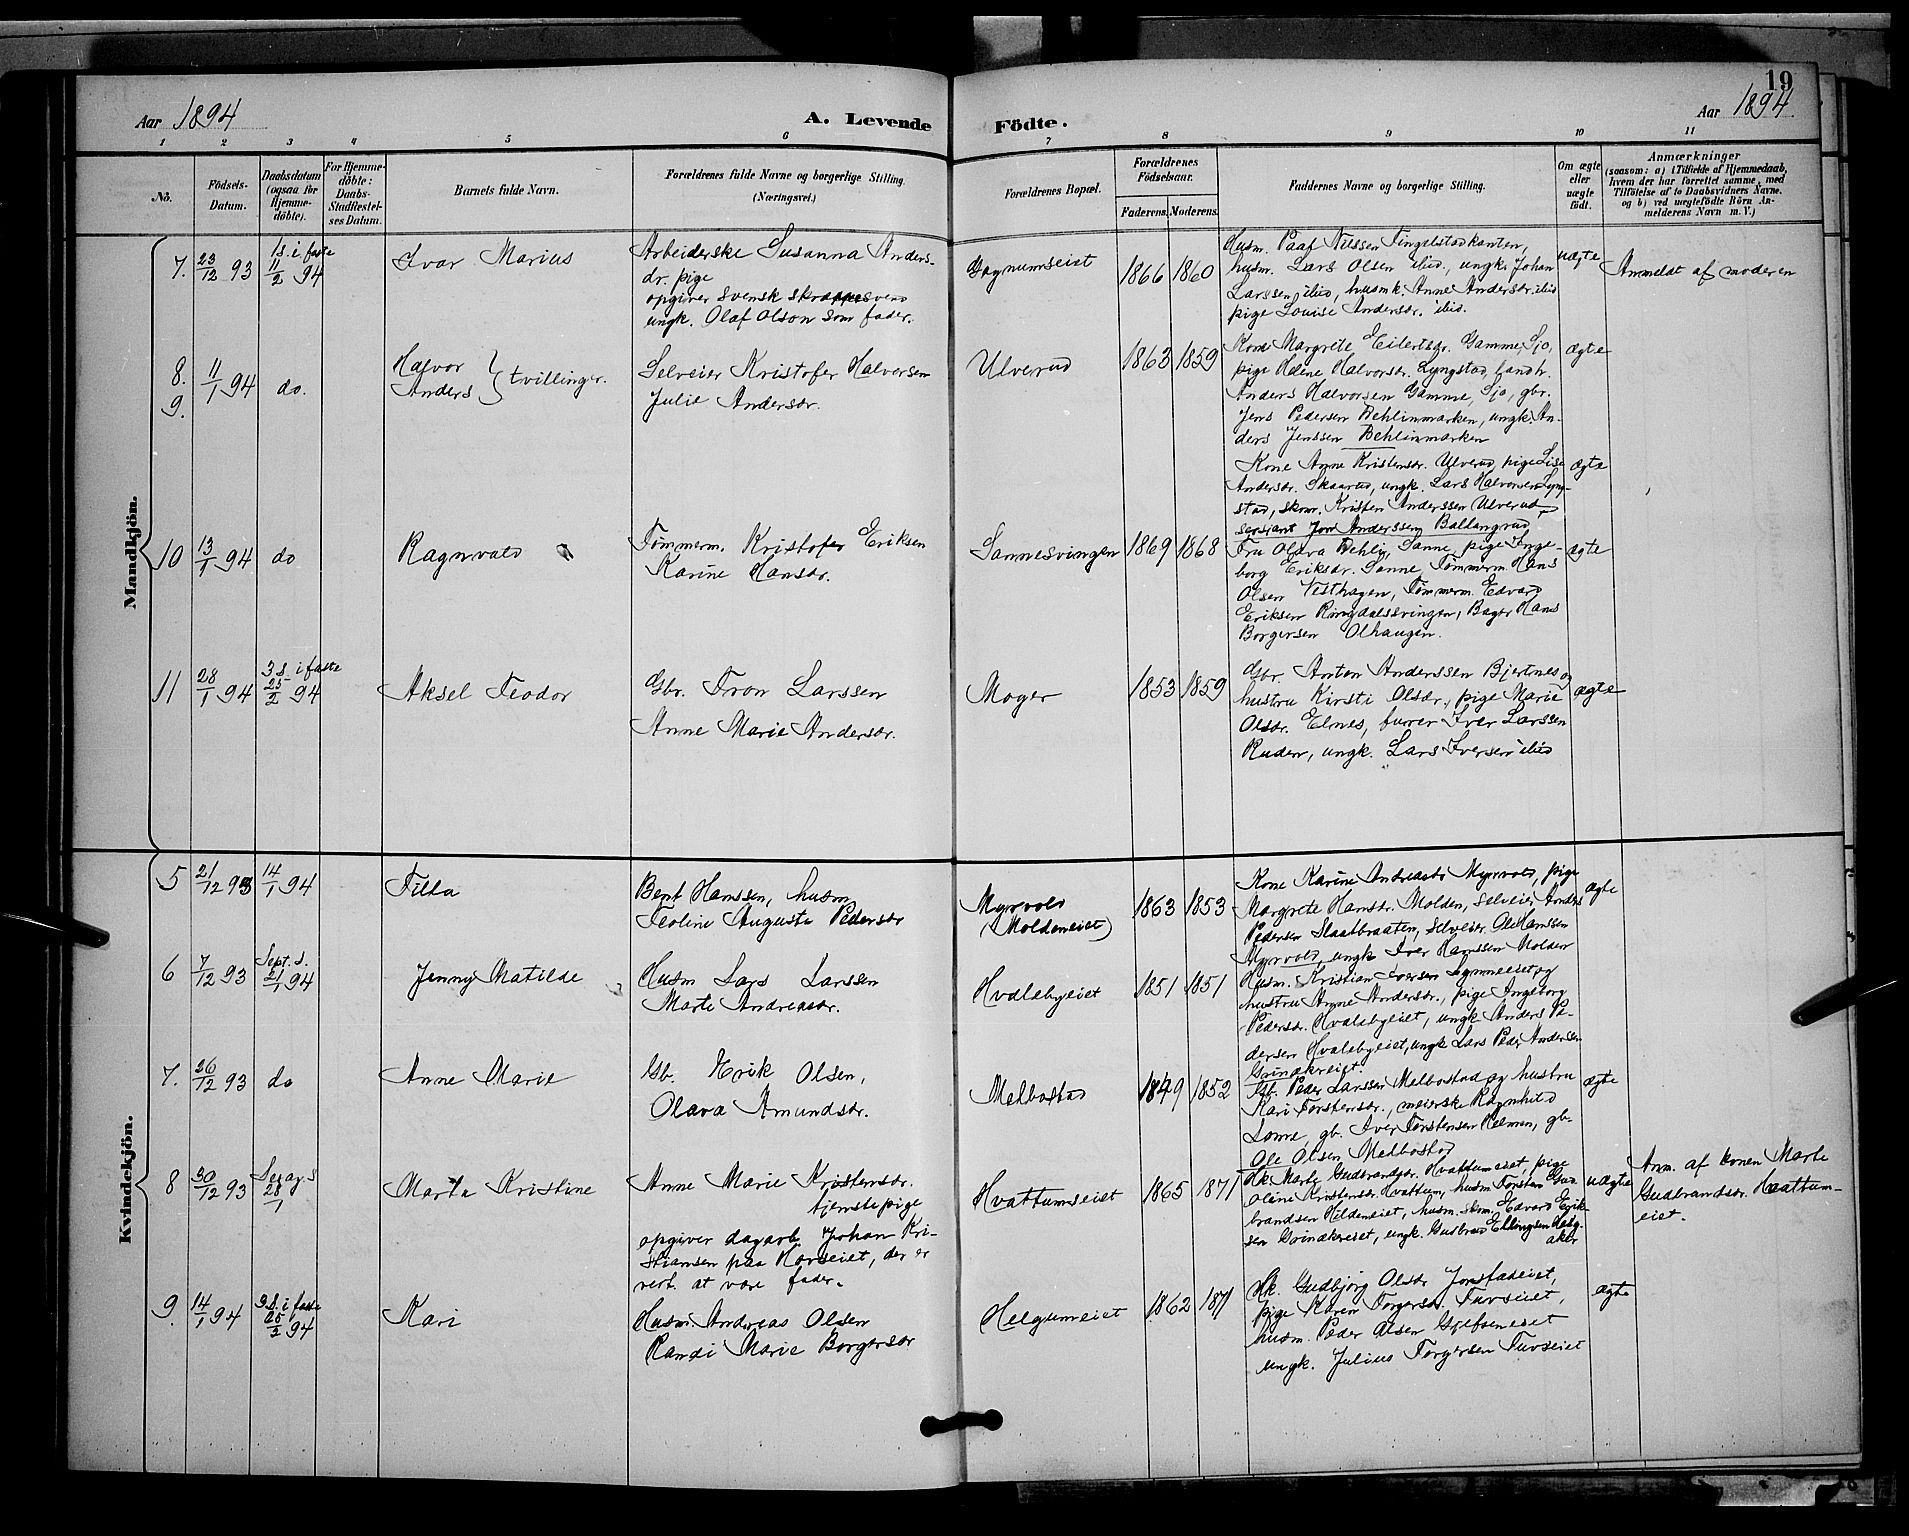 19
Aar 1894
A. Levende
Födte.
Aar 1894.
1 2 3 4 5 6 7 8 9 10 11
No.
Födsels-
Datum.
Daabsdatum
(ogsaa for
Hjemme-
döbte).
For Hjemme-
döbte:
Daabs-
Stadfæstel-
ses Datum.
Barnets fulde Navn.
Forældrenes fulde Navne og borgerlige Stilling.
(Næringsvei.)
Forældrenes Bopæl.
Forældrenes
Födselsaar.
Faderens. Moderens.
Faddernes Navne og borgerlige Stilling.
Om ægte
eller
uægte
födt.
Anmærkninger
(saasom: a) i Tilfælde af Hjemmedaab,
hvem der har forrettet samme, med
Tilföielse af to Daabsvidners Navne.
og b) ved uægtefödte Börn An-
melderens Navn m. V.)
Mandkjön.
7. 23/12 93
1s. i faste
11/2 94
Ivar Marius
Arbeiderske Susanna Anders-
dr. pige
opgiver svensk
ungk. Olaf Olson som fader.
Gagnumseiet
1866 1860
Husm. Paal Nilssen Tingelstadkanten,
husm. Lars Olsen ibid., ungk. Johan
Larssen ibid, husmk. Anne Andersdr. ibid
pige Louise Andersdr. ibid.
uægte
Anmeldt af moderen
8.
9.
11/1 94
do.
Halvor
Anders } tvillinger.
Selveier Kristofer Halvorsen
Julie Andersdr.
Ulverud
1863 1859
Kone Margrete Eilertsdr. Gamme, Sjo,
pige Helene Halvorsdr. Lyngstad, landh.
Anders Halvorsen Gamme, Sjo, gbr.
Jens Pedersen Behlinmarken, ungk. An-
ders Jenssen Behlinmarken
ægte
Kone Anne Kristensdr. Ulverud, pige Lise
Andersdr. Skaarud, ungk. Lars Halvorsen Lyng-
stad, skom. Kristen Anderssen Ulverud,
sersjant Jon Anderssen Ballangrud
ægte
10 13/1 94 do
Ragnvald
Tømmerm. Kristofer Eriksen
Karine Hansdr.
Sannesvingen
1869 1868
Fru Olava Dehli, Sanne, pige Inge-
borg Eriksdr. Sanne, Tømmerm. Hans
Olsen Vesthagen, Tømmerm. Edvard
Eriksen Ringdalssvingen, Bager Hans
Borgersen Olhaugen.
ægte
11 28/1 94
3.s. i faste
25/2 94
Aksel Teodor
Gbr. Tron Larssen
Anne Marie Andersdr.
Moger
1853 1859
Gbr. Anton Anderssen Bjertnes og
hustru Kirsti Olsdr., pige Marie
Olsdr. Elnes, furer Iver Larssen
Ruden, ungk. Lars Iversen ibid
ægte
Kvindekjön.
5 21/12 93 14/1 94
Tilla
Bent Hanssen, husm
Teoline Augusta Pedersdr
Myrvold
(Moldeneiet)
1863 1853
Kone Karine Andreasdr Myrvold, pige
Margrete Hansdr. Molden, selveier Anders
Pedersen Slaatbraaten, selveier Ole Hanssen
Myrvold, ungk Iver Hanssen Molden
ægte
6 7/12 93
Sept. s.
21/1 94
Jenny Matilde
Husm Lars Larssen
Marte Andreasdr.
Hvalebyeiet
1851 1851
Husm. Kristian Iversen Lynneeiet og
hustru Anne Andersdr., pige Ingeborg
Pedersdr. Hvalebyeiet, ungk Anders Pe-
dersen Hvalebyeiet, ungk Lars Peder Andersen
Grinakreiet
7. 26/12 93 do
Anne Marie
Gb. Erik Olsen,
Olava Amundsdr.
Melbostad
1849 1852
Gb. Peder Larssen Melbostad og hustru
Kari Torstensdr., meierske Ragnhild
Lome, gb. Iver Torstensen Helmen, gb.
Ole Olsen Melbostad
ægte
8 30/12 93
Sexag. s
28/1
Marta Kristine
Anne Marie Kristensdr.
tjenstepige
opgiver dagarb. Johan Kri-
stiansen paa Horseiet, der er
reist. at være fader.
Hvattumseiet
1865 1871
Hk. Marte Gudbrandsdr. Hvattumeiet, pige
Oline Kristensdr. Hvattum, husm Torsten Gud-
brandsen Hildeneiet, husm. skm. Edvard Erik-
sen Grinakreiet, ungk. Gudbrand Ellingsen
aker
uægte
Anm. af konen Marte
Gudbrandsdr. Hvattum-
eiet.
9. 14/1 94
3.S. i faste
25/2 94
Kari
Husm. Andreas Olsen
Randi Marie Borgersdr
Helgumeiet
1862 1871
Hk. Gudbjörg Olsdr Jonstadeiet,
pige Karen Torgersdr. Tuvseiet,
husm. Peder Olsen Gjefseneiet
ungk. Julius Torgersen Tuvseiet
ægte